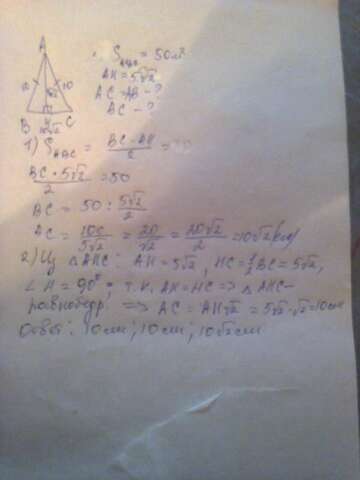 A
S△ABC = 50 см²
AH = 5√2
10 10 AC = AB - ?
BC - ?
B H C
10√2
1) S△ABC = BC · AH / 2 = 50
BC · 5√2 / 2 = 50
BC = 50 : 5√2 / 2
BC = 100 / 5√2 = 20 / √2 = 20√2 / 2 = 10√2 (см)
2) Из △AHC: AH = 5√2, HC = ½ BC = 5√2,
∠H = 90°, т.к. AH = HC => △AHC -
равнобедр. => AC = AH√2 = 5√2 · √2 = 10 см
Ответ: 10 см; 10 см; 10√2 см